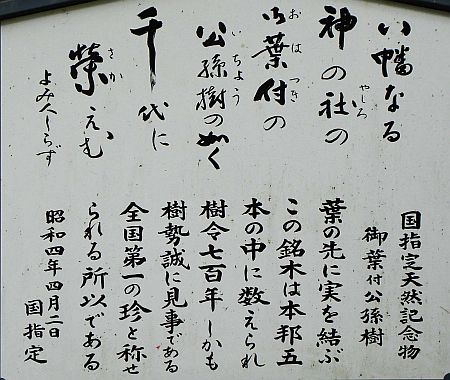 八幡なる
神の社の
やしろ
御葉付の
おはつき
公孫樹の如く
いちよう
千代に
榮えむ
さか
よみ人しらず
国指定天然記念物
御葉付公孫樹
葉の先に実を結ぶ
この銘木は本邦五
本の中に数えられ
樹令七百年しかも
樹勢誠に見事である
全国第一の珍と称せ
られる所以である
昭和四年四月二日
国指定